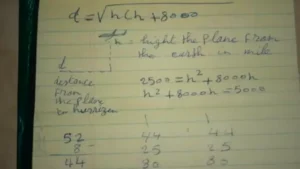 d = √h(h + 8000
h = hight the plane from
the earth in mile
d
distance
from
the plane
to horrizon
2500 = h² + 8000h
h² + 8000h = 5000
52 44 44
8 25 25
44 30 30